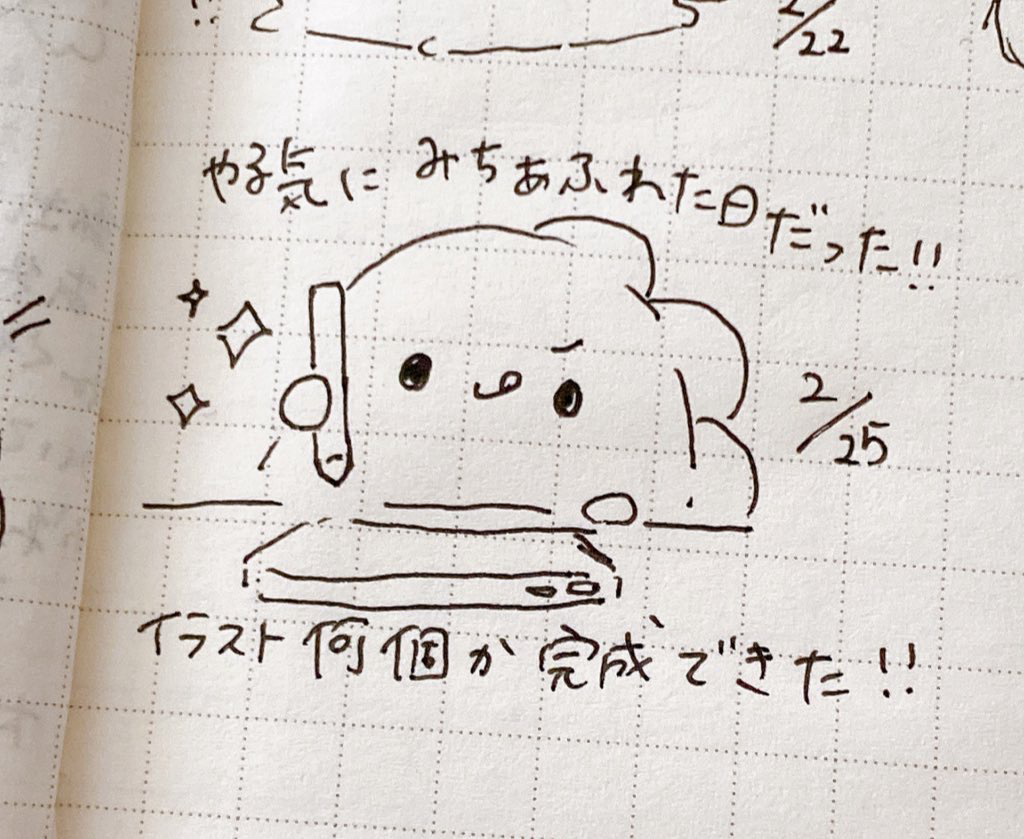 !!
2/22
やる気に みちあふれた日だった!!
2/25
イラスト何個か完成できた!!